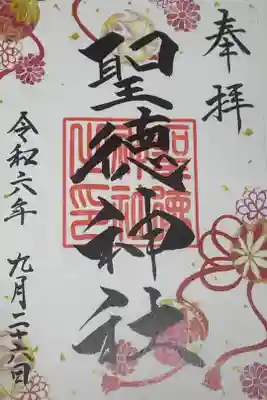 奉拝
聖徳神社
令和六年 九月二十六日